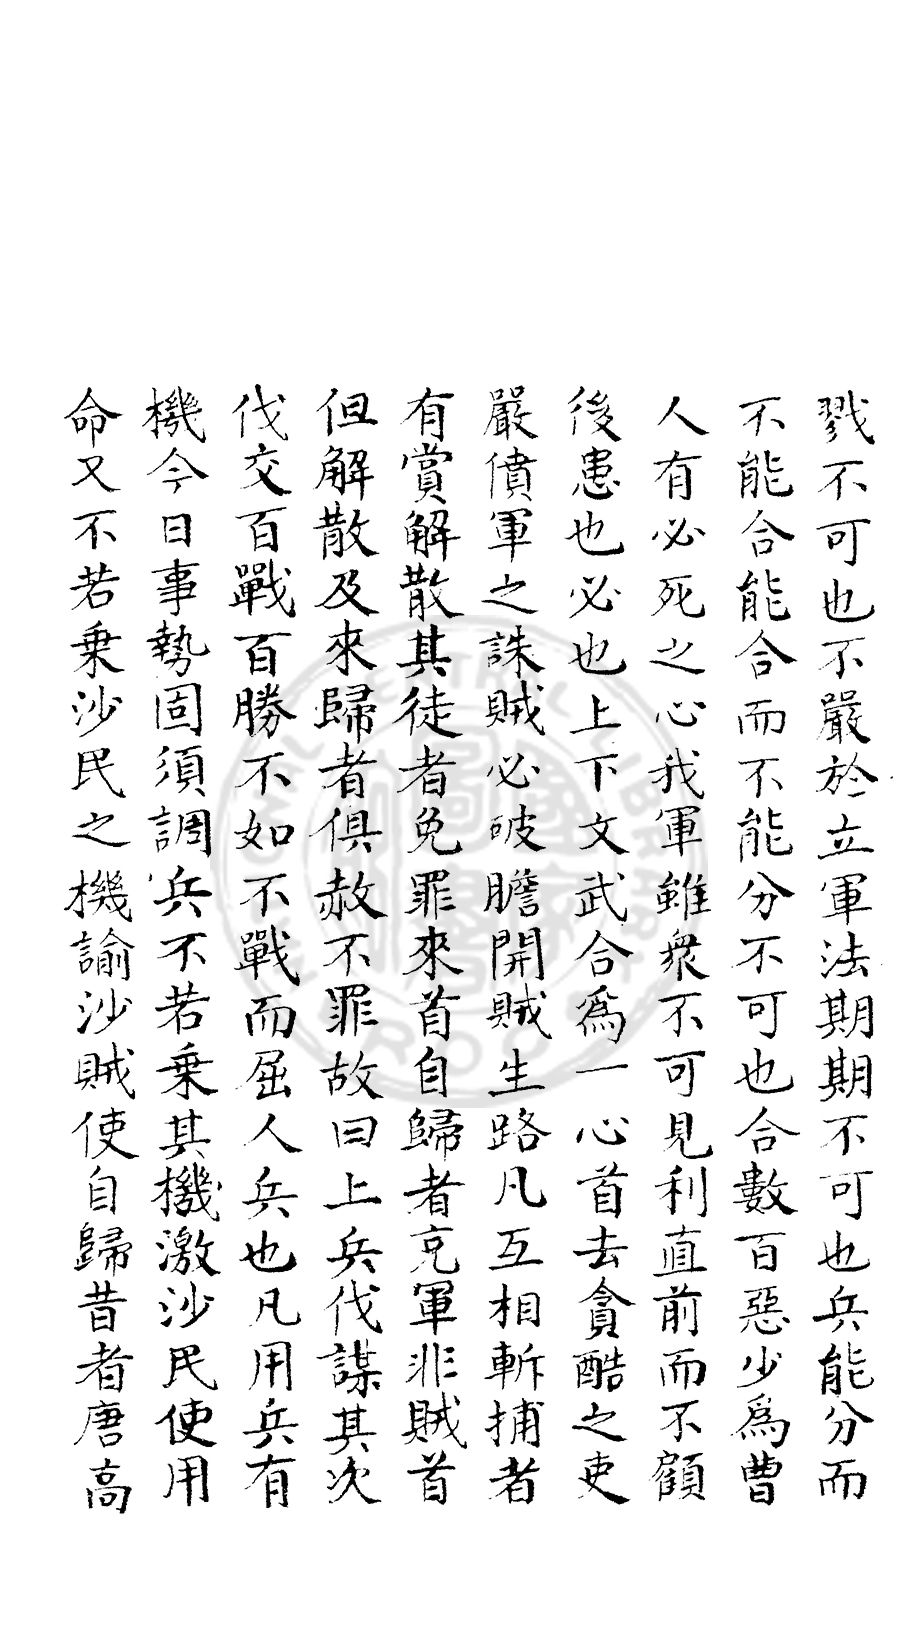 戮不可也不嚴於立軍法期期不可也兵能分而
不能合能合而不能分不可也合數百惡少爲曹
人有必死之心我軍雖衆不可見利直前而不顧
後患也必也上下文武合爲一心首去貪酷之吏
嚴僨軍之誅賊必破膽開賊生路凡互相斬捕者
有賞解散其徒者免罪來首自歸者充軍非賊首
但解散及來歸者俱赦不罪故曰上兵伐謀其次
伐交百戰百勝不如不戰而屈人兵也凡用兵有
機今日事勢固須調兵不若乗其機激沙民使用
命又不若乗沙民之機諭沙賊使自歸昔者唐高
CENTRAL LIBRARY